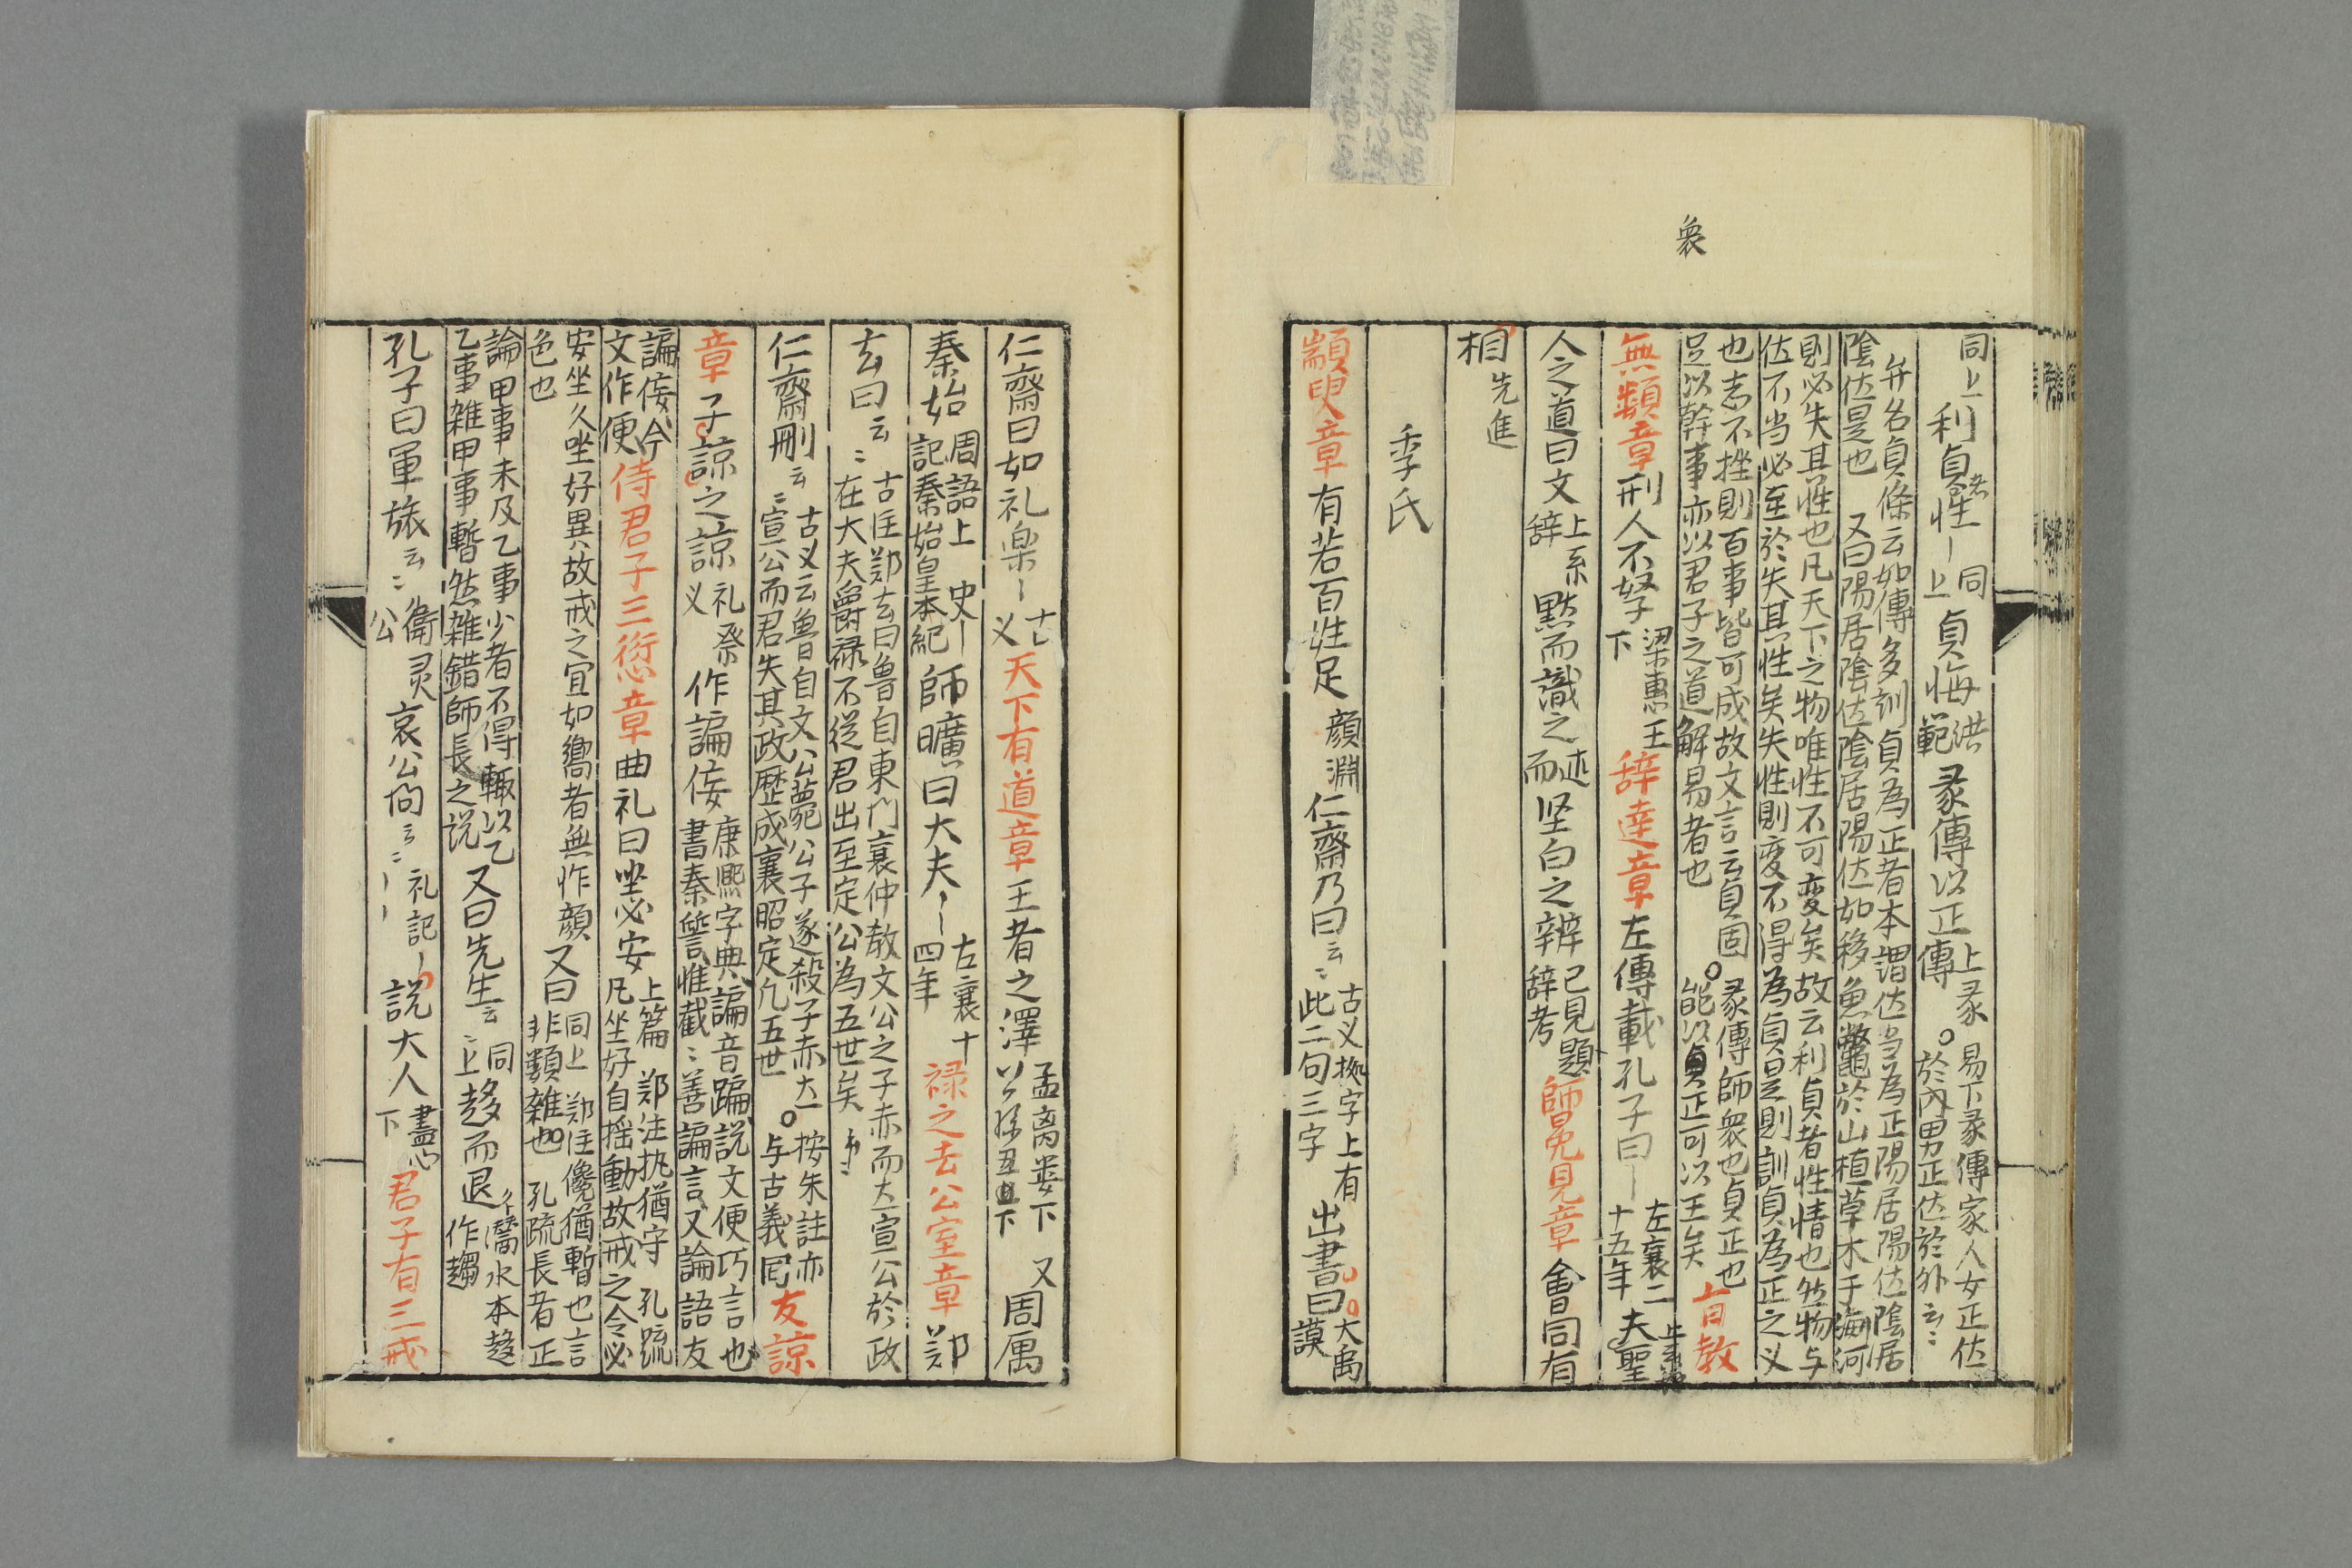 衆
同上利貞者性ー同上貞悔洪範彖傳以正上彖傳易下彖傳家人女正位於内男正位於外云〻
弁名貞條云如傳多訓貞為正者本謂位当為正陽居陽位陰居
陰位是也 又曰陽居陰位陰居陽位如移魚鼈於山植草木于海河
則必失其性也凡天下之物唯性不可変矣故云利貞者性情也然物与
位不当必至於失其性矣失性則変不得為貞是則訓貞為正之义
也志不挫則百事皆可成故文言云貞固彖傳師衆也貞正也
足以幹事亦以君子之道解易者也能以貞正可以王矣有教
無類章刑人不孥梁惠王下辞達章左傳載孔子曰ー左襄二十五年夫聖
人之道曰文上系辞黙而識之述而坚白之辨已見題辞考師冕見章會同有
相先進
季氏
顓臾章有若百姓足顔淵仁齋乃曰云〻古义拠字上有此二句三字出書曰大禹謨
仁齋曰如礼楽ー古义天下有道章王者之澤孟离娄下公孫丑下又周厲
秦始周語上史ー記秦始皇本紀師曠曰大夫ーー左襄十四年禄之去公室章鄭
玄曰云〻古注鄭玄曰魯自東門襄仲敖文公之子赤而立宣公於政
在大夫爵禄不從君出至定公為五世矣
仁齋刪云〻古义云魯自文公薨公子遂殺子赤立
宣公而君失其政歴成襄昭定凡五世按朱註亦与古義同友諒
章子諒之諒礼祭义作諞侫康熙字典諞音蹁説文便巧言也
書秦誓惟截〻善諞言又論語友
諞侫今文作便侍君子三愆章曲礼曰坐必安上篇 鄭注执猶守 孔疏
凡坐好自揺動故戒之令必
安坐久坐好異故戒之宜如嚮者無怍顔
色也又曰同上 鄭注儳猶暫也言
非類雑也 孔疏長者正
論甲事未及乙事少者不得輙以乙
乙事雑甲事暫然雑錯師長之説又曰先生云〻同上趍而退久濡水本趍作趨
孔子曰軍旅云〻衛灵公哀公问云〻礼記ー説大人盡心下君子有三戒